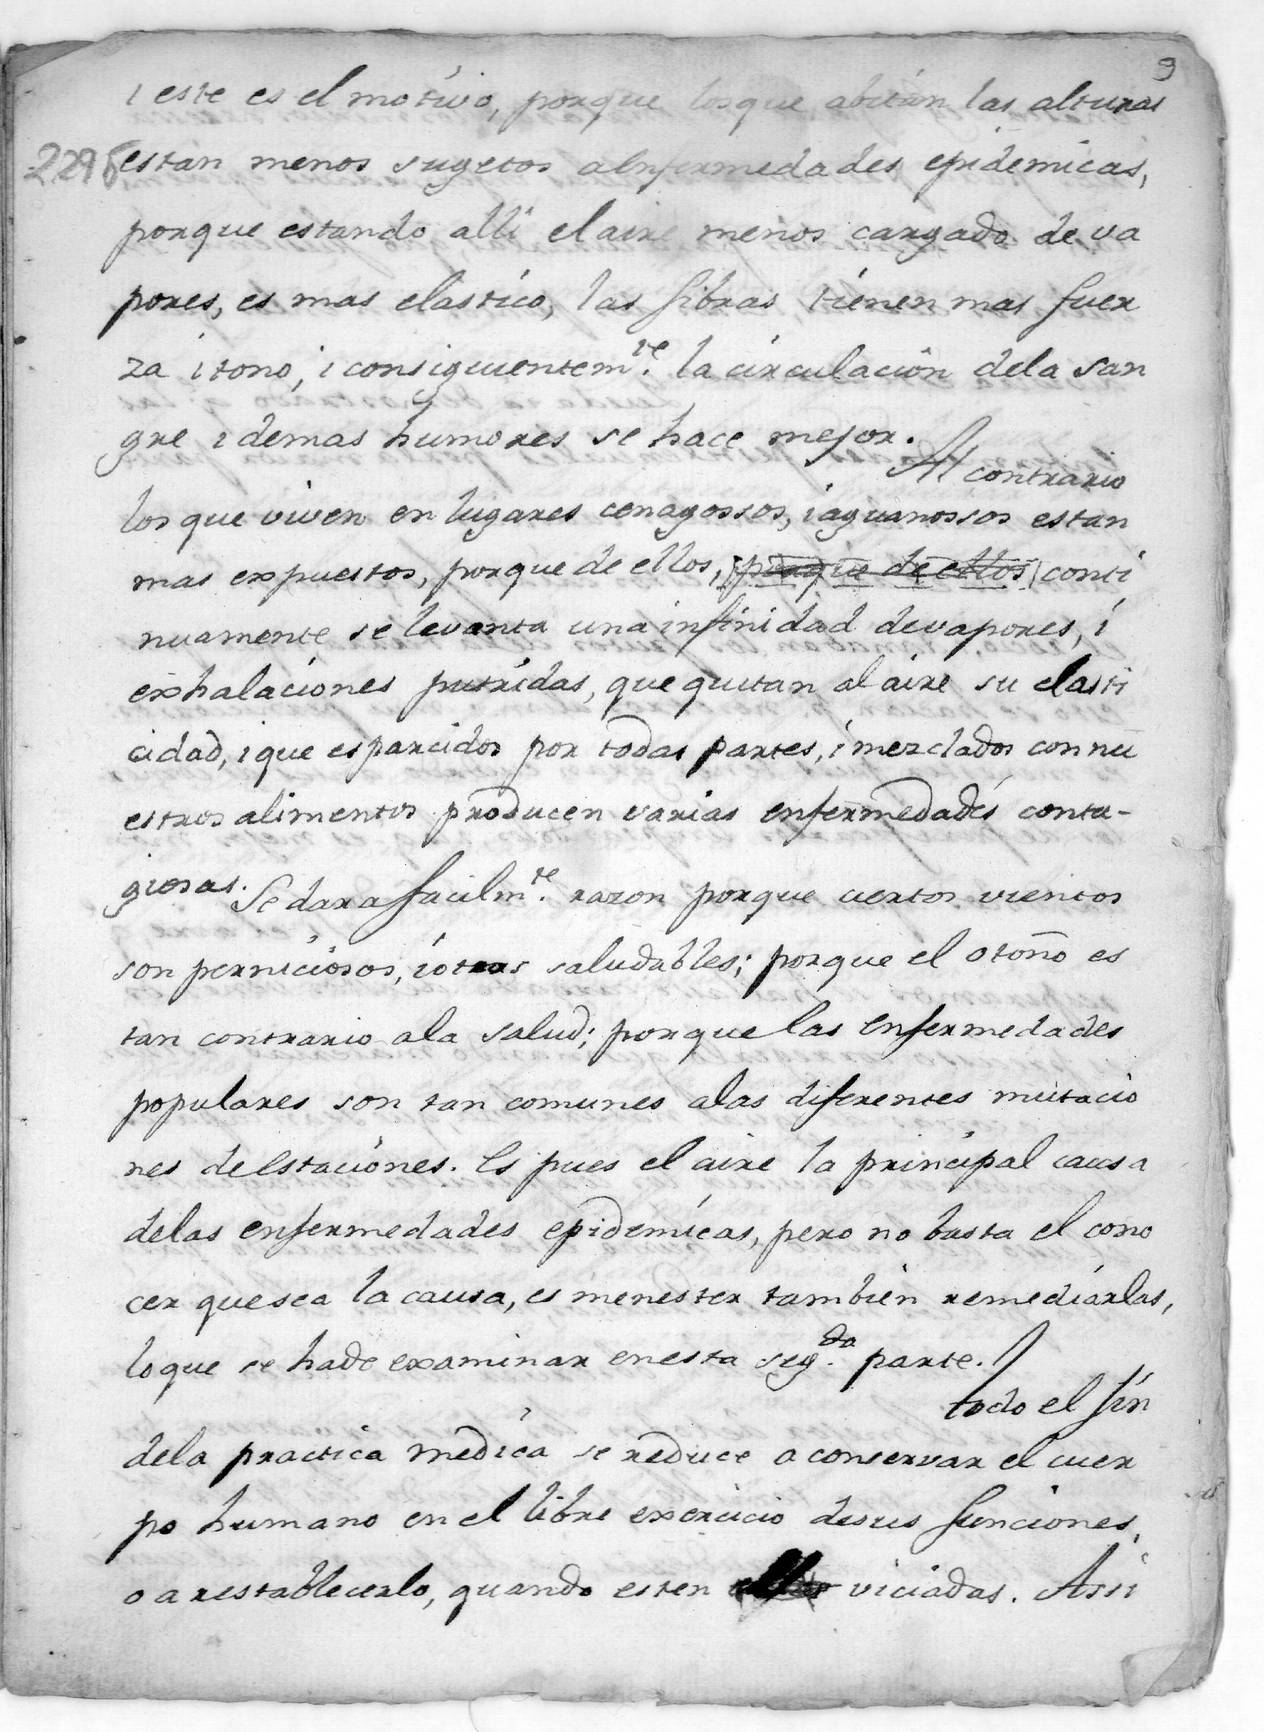 9
i este es el motivo, porque los que abitan las alturas
estan menos sugetos a Enfermedades epidemicas,
porque estando alli el aire menos cargado de va
pores, es mas elastico, las fibras tienen mas fuer
za i tono, i consiguientem.te la circulacion dela san
gre i demas humores se hace mejor.
Al contrario
los que viven en lugares cenagossos, i aguanossos estan
mas expuestos, porque de ellos, porque de ellos conti
nuamente se levanta una infinidad de vapores, i
exhalaciones putridas, que quitan al aire su elasti
cidad, i que esparcidos por todas partes, i mezclados con nu
estros alimentos producen varias enfermedades conta-
giosas. Se dara facilm.te razon porque ciertos vientos
son perniciosos, i otros saludables; porque el otoño es
tan contrario ala salud; porque las enfermedades
populares son tan comunes alas diferentes mutacio
nes de Estaciones. Es pues el aire la principal causa
delas enfermedades epidemicas, pero no basta el cono
cer que sea la causa, es menester tambien remediarlas,
lo que se hade examinar en esta seg.da parte.
todo el fin
dela practica medica se reduce a conservar el cuer
po humano en el libre exercicio desus funciones,
o a restablecerlo, quando esten viciadas. Assi